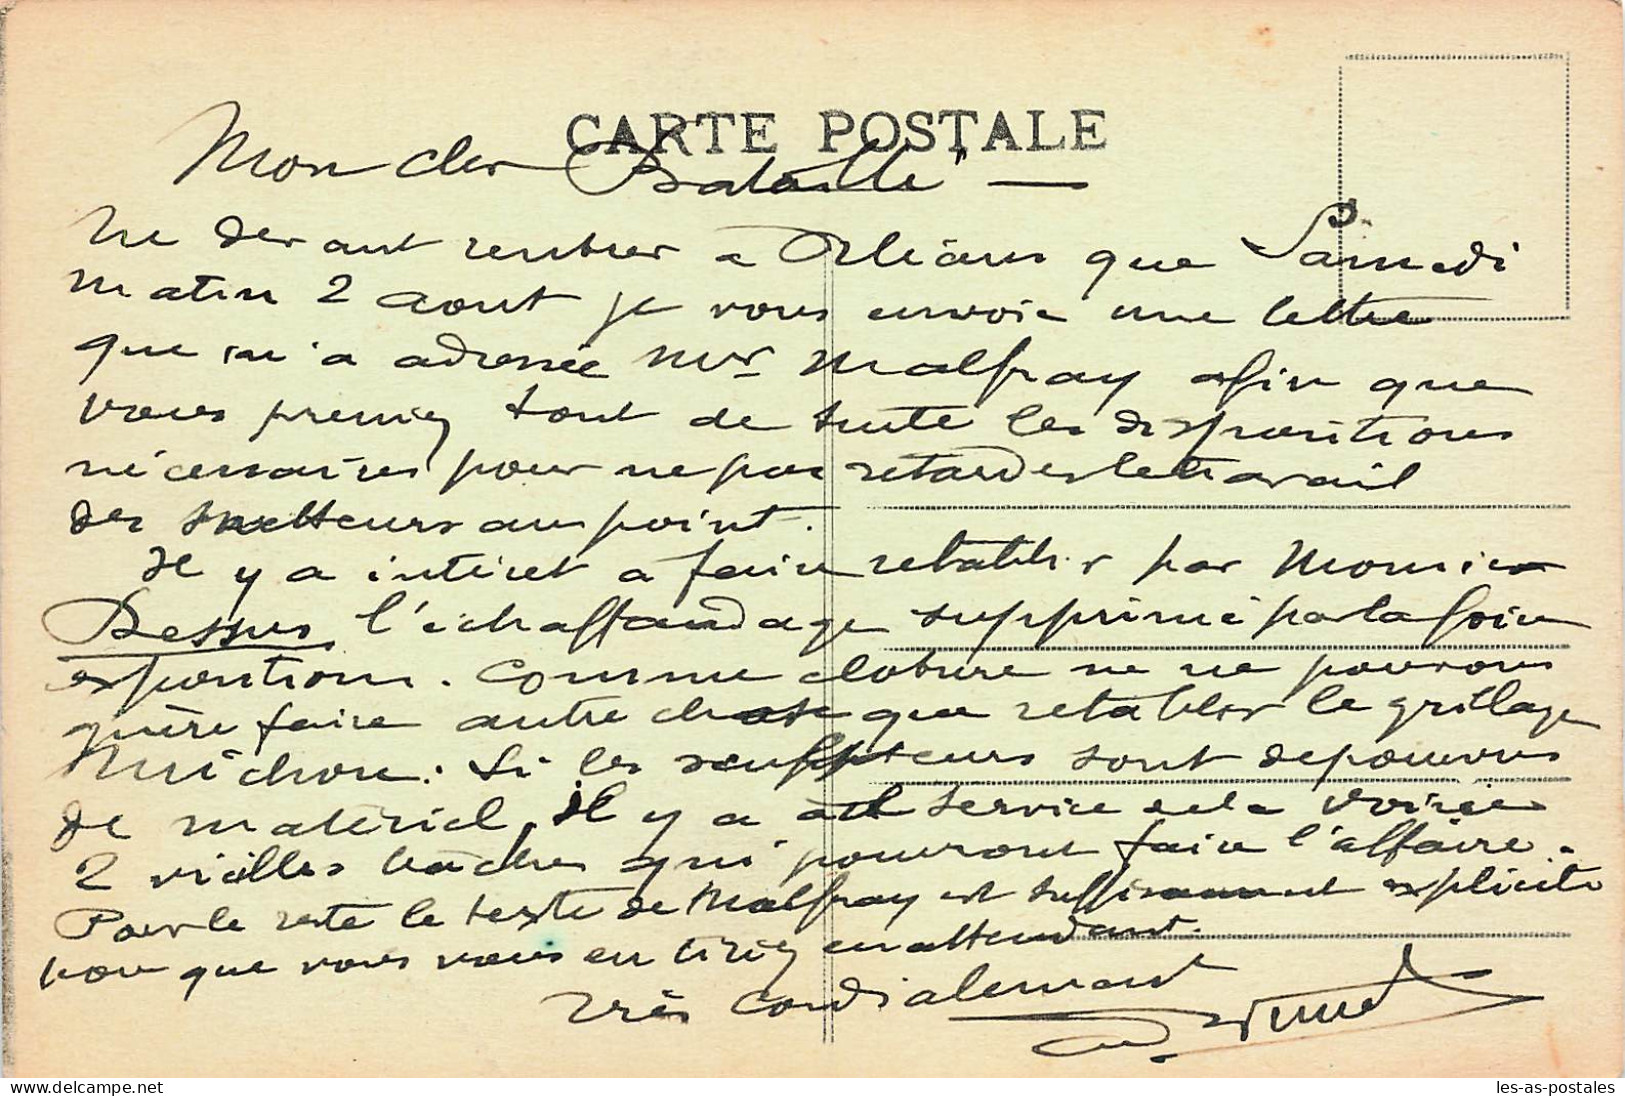 CARTE POSTALE
Mon cher Bataille —
Ne devant rentrer a Orléans que Samedi
matin 2 aout je vous envoie une lettre
que m'a adressée Mr Malfray afin que
vous preniez tout de suite les dispositions
nécessaires pour ne pas retarder le travail
des metteurs au point.
Il y a intéret a faire retablir par Monsieur
Dessus l'échaffaudage supprimé par la foire
exposition. Comme cloture ne ne pouvons
guère faire autre chose que retablir le grillage
Michon. Si les sculpteurs sont depourvus
de materiel, il y a au service de la voirie
2 vieilles bâches qui pourront faire l'affaire.
Pour le reste le texte de Malfray est suffisamment explicite
pour que vous vous en tiriez en attendant.
Très cordialement
delcampe.net
les-as-postales